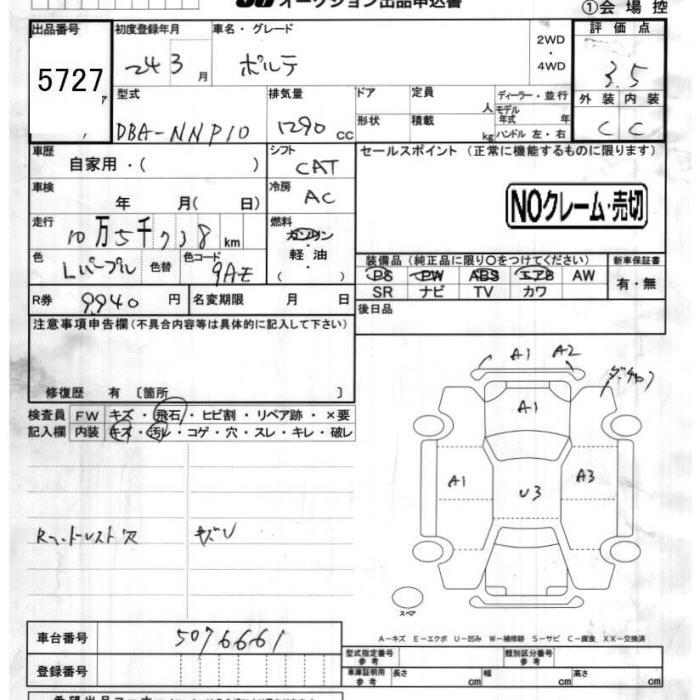 オークション出品申込書
①会場控
出品番号 初度登録年月 車名・グレード 評価点
5727 24 3 月 ポルテ 2WD・4WD 3.5
型式 排気量 ドア 定員 人 ディーラー・並行 外装 内装
DBA-NNP10 1290 cc 形状 積載 kg モデル年式 年 ハンドル 左・右 C C
車歴 シフト セールスポイント (正常に機能するものに限ります)
自家用・( ) CAT
車検 冷房
年 月( 日) AC
NOクレーム・売切
走行 燃料
10万5千738 km ガソリン・軽油
( )
色 色替 色コード
Lパープル 9AE
装備品 (純正品に限り○をつけてください) 新車保証書
PS PW ABS エアB AW 有・無
SR ナビ TV カワ
R券 9,940 円 名変期限 月 日
後日品
注意事項申告欄(不具合内容等は具体的に記入して下さい)
修復歴 有 〔箇所 〕
検査員 FW キズ・飛石・ヒビ割・リペア跡・×要
記入欄 内装 キズ・汚レ・コゲ・穴・スレ・キレ・破レ
A1 A2
A1
A1 U3 A3
スペア
A-キズ E-エクボ U-凹み W-補修跡 S-サビ C-腐食 XX-交換済
車台番号 5076661
型式指定番号 参考 類別区分番号 参考
登録番号
車庫証明用 参考 長さ cm 幅 cm 高さ cm